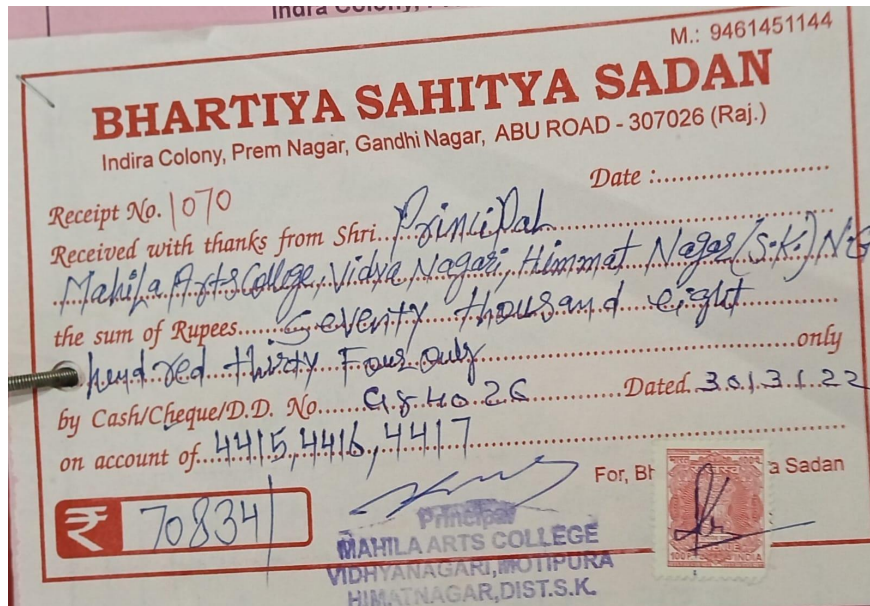 Indra Colony,
M.: 9461451144
BHARTIYA SAHITYA SADAN
Indira Colony, Prem Nagar, Gandhi Nagar, ABU ROAD - 307026 (Raj.)
Date :
Receipt No. 1070
Received with thanks from Shri. Principal
Mahila Arts College, Vidya Nagari, Himmat Nagar (S.K.) N.G
the sum of Rupees Seventy thousand eight
hundred thirty Four only only
by Cash/Cheque/D.D. No. Dated. 30.3.22
on account of 4415, 4416, 4417
For, Bh a Sadan
₹ 70834/
Principal
MAHILA ARTS COLLEGE
VIDHYANAGARI, MOTIPURA
HIMATNAGAR, DIST.S.K.
INDIA